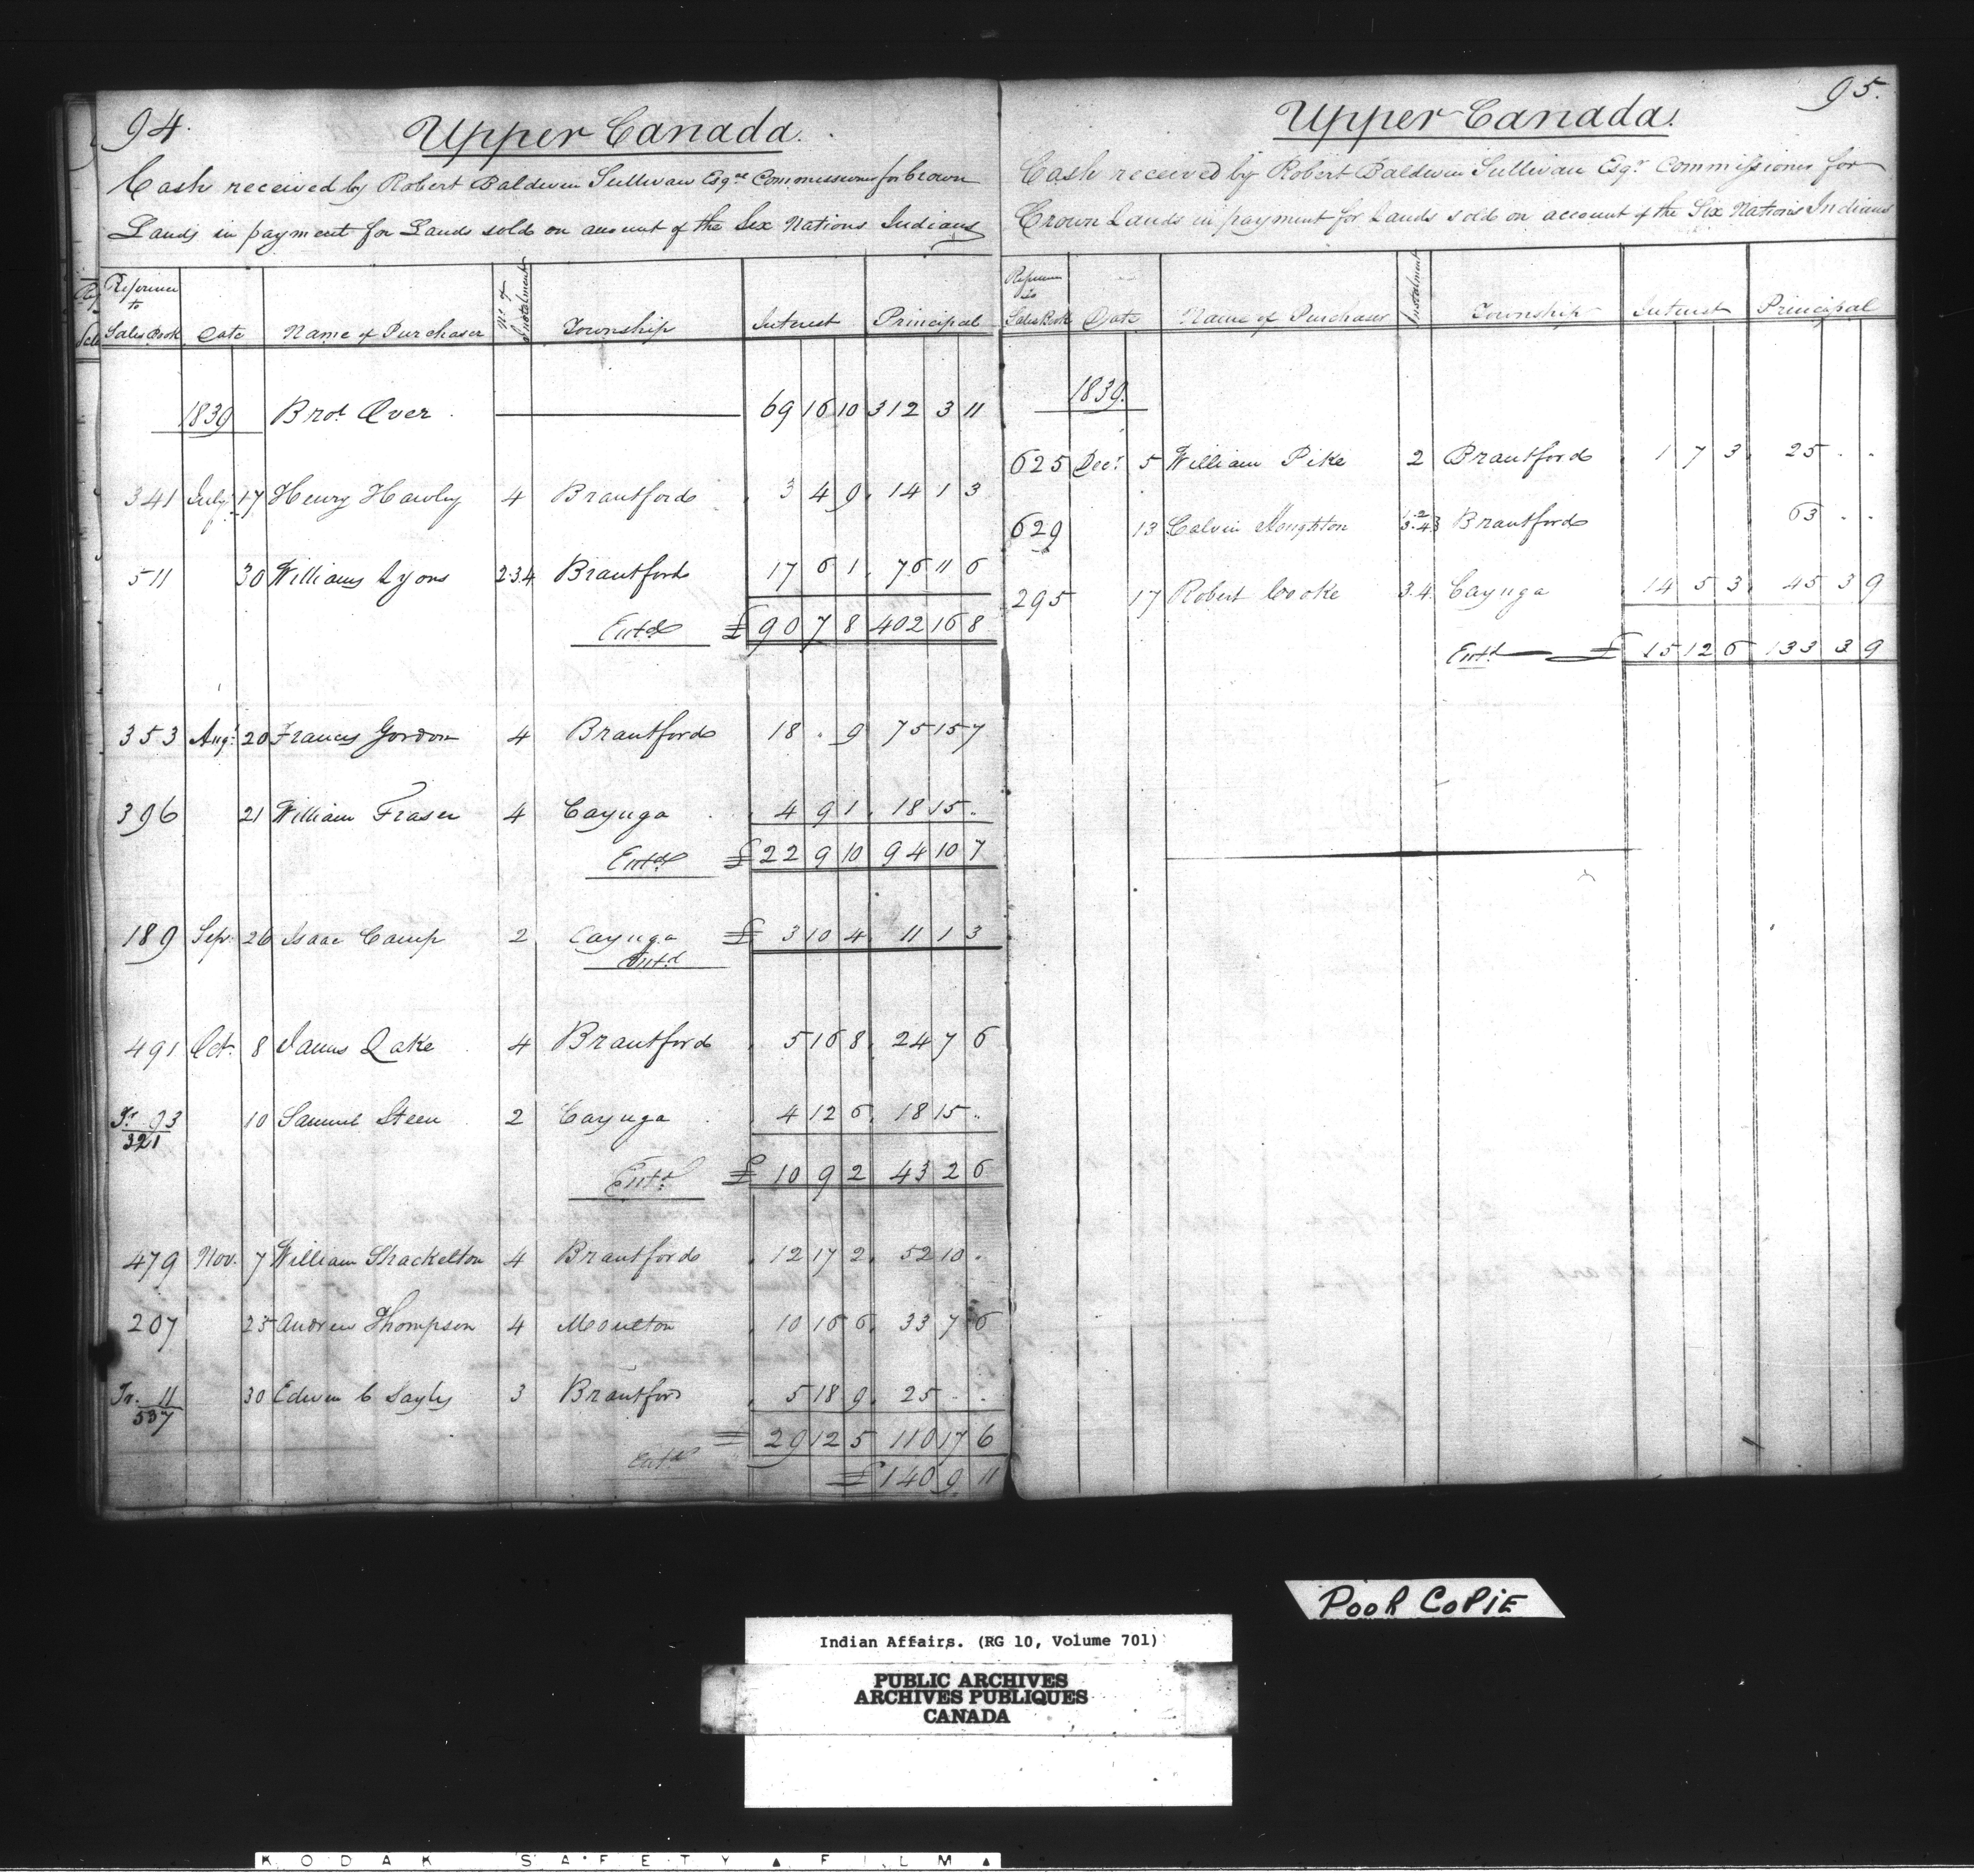 94.
Upper Canada.
Cash received by Robert Baldwin Sullivan Esqre Commissioner for Crown
Lands in payment for Lands sold on account of the Six Nations Indians
Reference to Sales Book Date Name of Purchaser No. of Instalment Township Interest Principal
1839 Brot. Over 69 16 10 312 3 11
341 July 17 Henry Hawley 4 Brantford 3 4 9 14 1 3
511 30 William Lyons 2.3.4 Brantford 17 6 1 76 11 6
Entd £ 90 7 8 402 16 8
353 Augt. 20 Francis Gordon 4 Brantford 18 . 9 75 15 7
396 21 William Fraser 4 Cayuga 4 9 1 18 15 ..
Entd £ 22 9 10 94 10 7
189 Sepr. 26 Isaac Camp 2 Cayuga £ 3 10 4 11 1 3
Entd
491 Oct. 8 James Lake 4 Brantford 5 16 8 24 7 6
Tr 93 10 Samuel Steen 2 Cayuga 4 12 6 18 15 ..
321
Entd £ 10 9 2 43 2 6
479 Nov. 7 William Shackelton 4 Brantford 12 17 2 52 10 .
207 25 Andrew Thompson 4 Moulton 10 16 6 33 7 6
Tr. 11 30 Edwin C 3 Brantford 5 18 9 25 . .
537
29 12 5 110 17 6
Entd
£ 140 9 11
95.
Upper Canada.
Cash received by Robert Baldwin Sullivan Esqr. Commissioner for
Crown Lands in payment for Lands sold on account of the Six Nations Indians
Reference to Sales Book Date Name of Purchaser Instalment Township Interest Principal
1839.
625 Decr 5 William Pike 2 Brantford 1 7 3 25 . .
629 13 Calvin Houghton 1.2 3.4 Brantford 63 . .
295 17 Robert Cooke 3.4. Cayuga 14 5 3 45 3 9
Entd £ 15 12 6 133 3 9
POOR COPIE
Indian Affairs. (RG 10, Volume 701)
PUBLIC ARCHIVES
ARCHIVES PUBLIQUES
CANADA
KODAK SAFETY ▲ FILM ▲